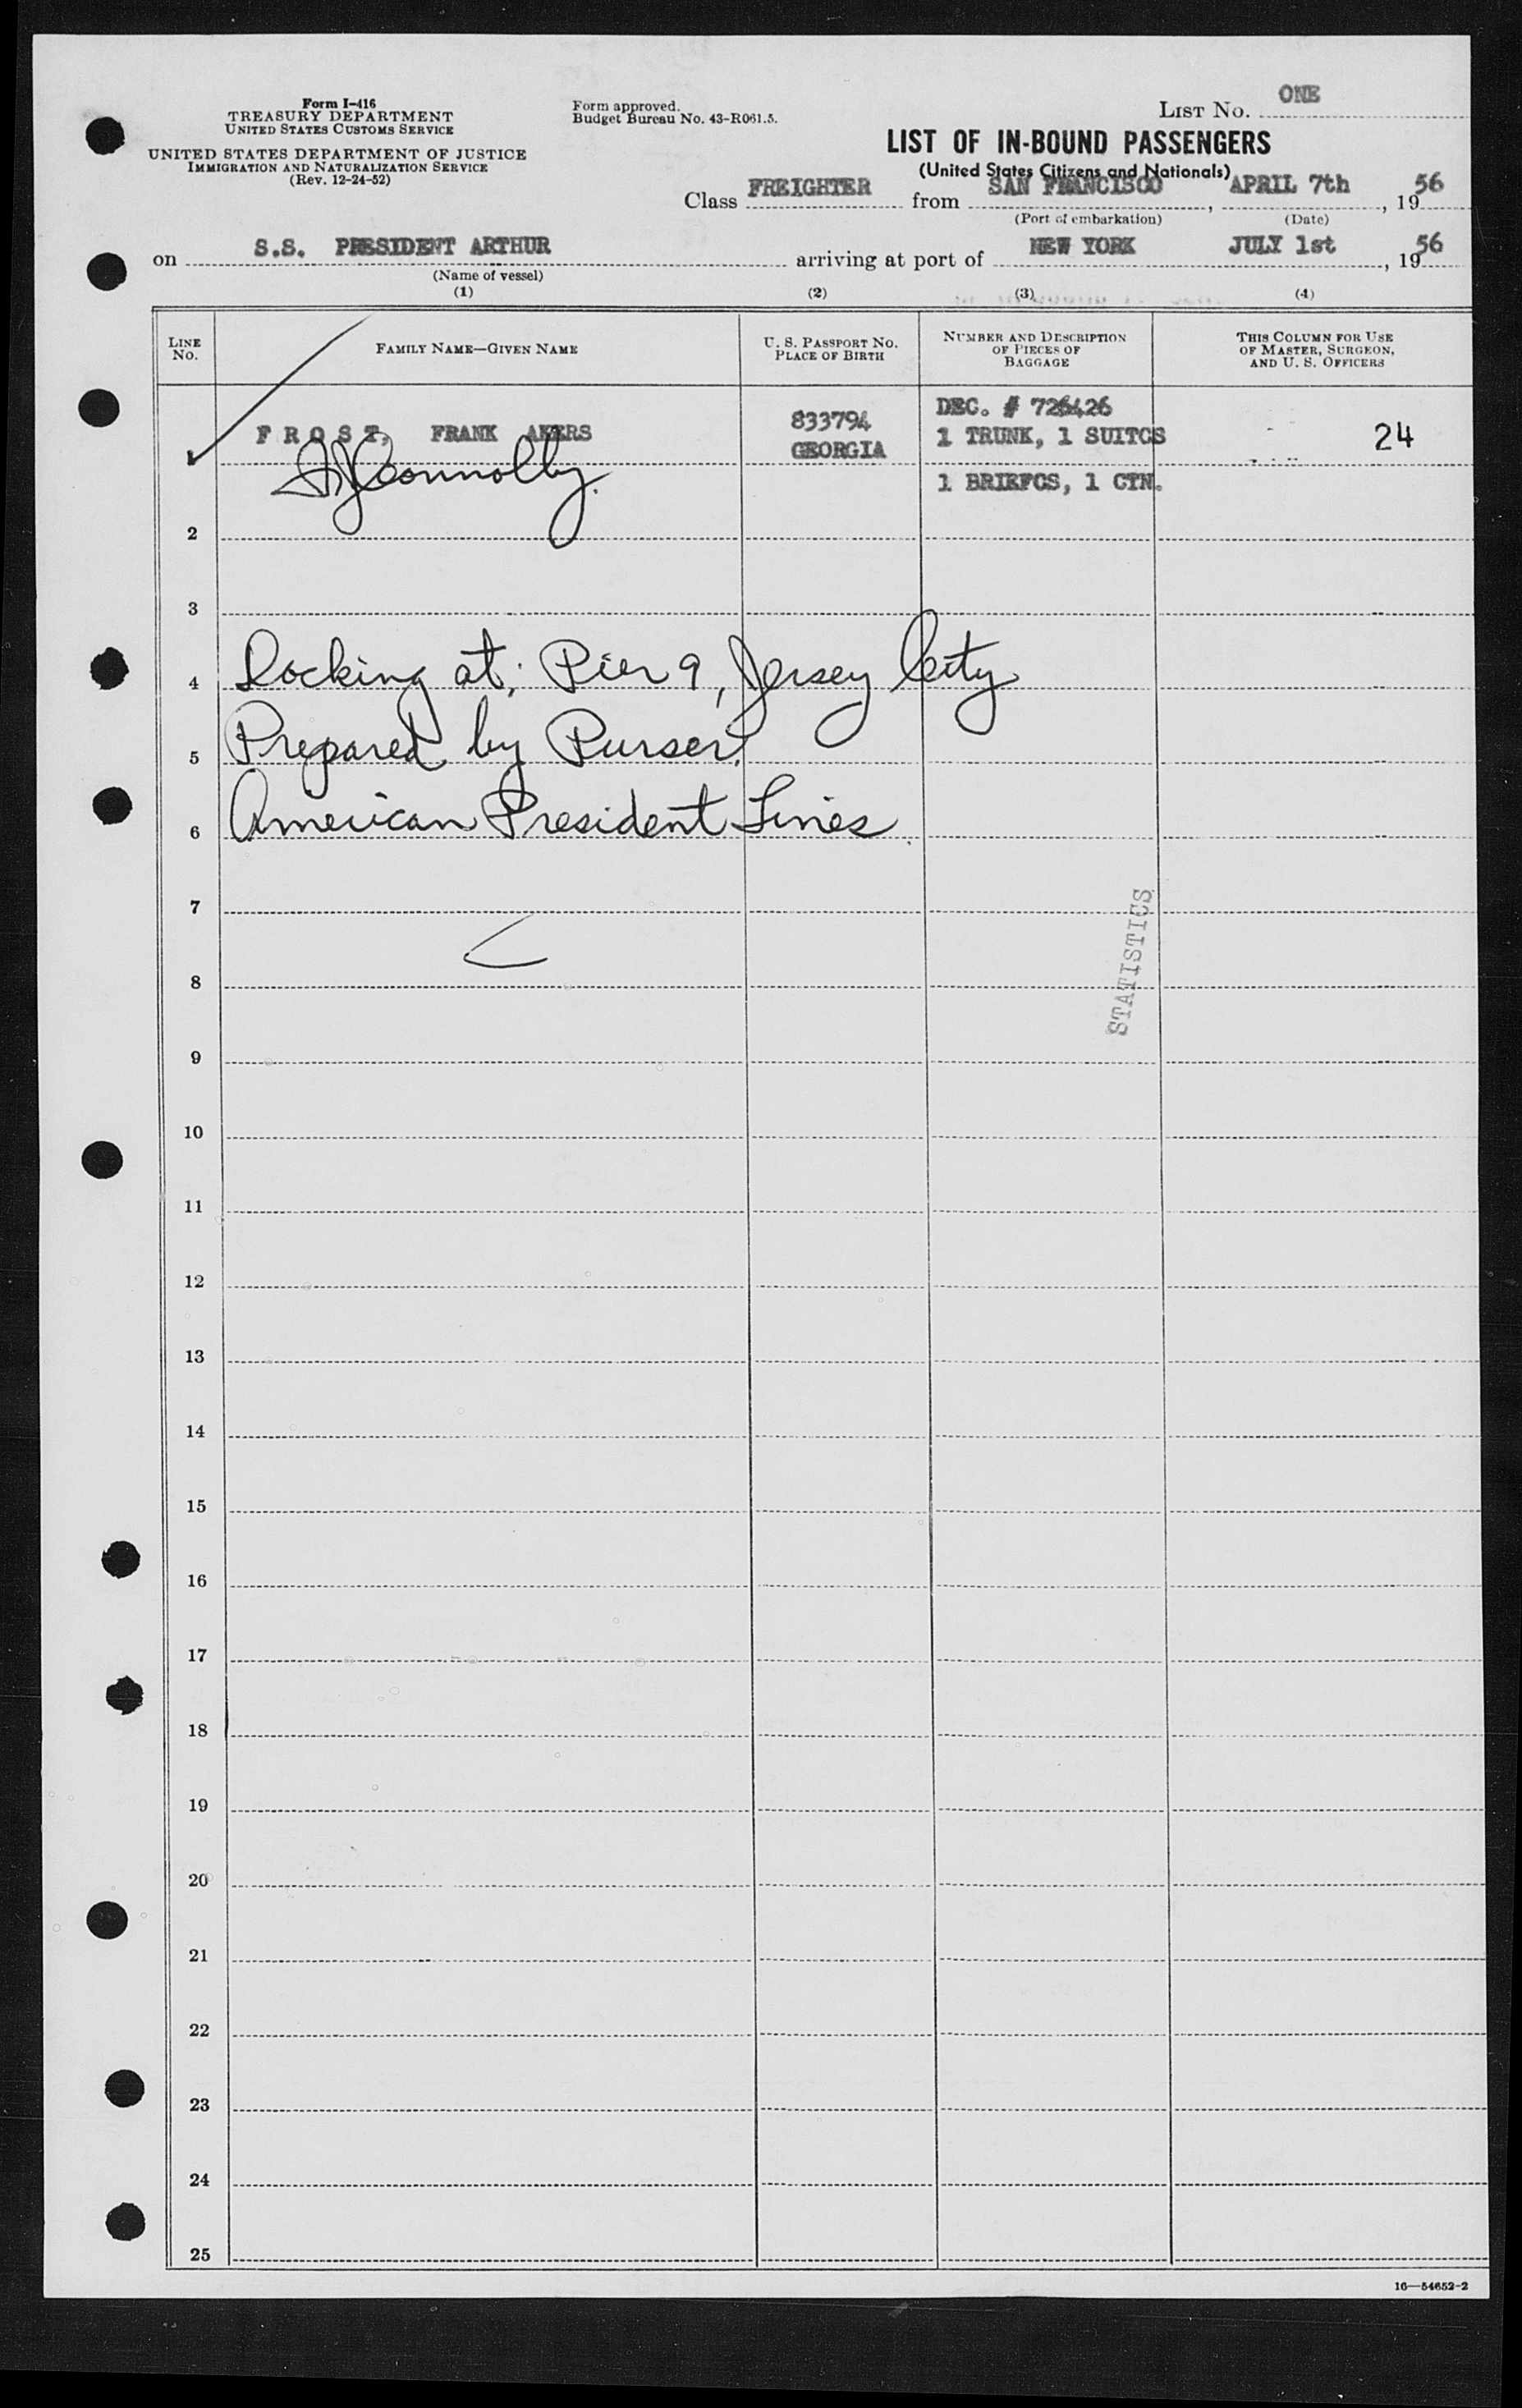 Form I-416
TREASURY DEPARTMENT
UNITED STATES CUSTOMS SERVICE
UNITED STATES DEPARTMENT OF JUSTICE
IMMIGRATION AND NATURALIZATION SERVICE
(Rev. 12-24-52)
Form approved.
Budget Bureau No. 43-R061.5.
LIST No. ONE
LIST OF IN-BOUND PASSENGERS
(United States Citizens and Nationals)
Class FREIGHTER from SAN FRANCISCO, APRIL 7th, 1956
(Port of embarkation) (Date)
on S.S. PRESIDENT ARTHUR arriving at port of NEW YORK JULY 1st, 1956
(Name of vessel)
(1) (2) (3) (4)
LINE NO.
FAMILY NAME—GIVEN NAME
U. S. PASSPORT NO.
PLACE OF BIRTH
NUMBER AND DESCRIPTION
OF PIECES OF
BAGGAGE
THIS COLUMN FOR USE
OF MASTER, SURGEON,
AND U. S. OFFICERS
1 F R O S T, FRANK AKERS
833794
GEORGIA
DEC. # 726426
1 TRUNK, 1 SUITCS
1 BRIEFCS, 1 CTN.
24
Connolly
2
3
4 Docking at; Pier 9, Jersey City
5 Prepared by Purser,
6 American President Lines
7
STATISTICS
8
9
10
11
12
13
14
15
16
17
18
19
20
21
22
23
24
25
16—54652-2